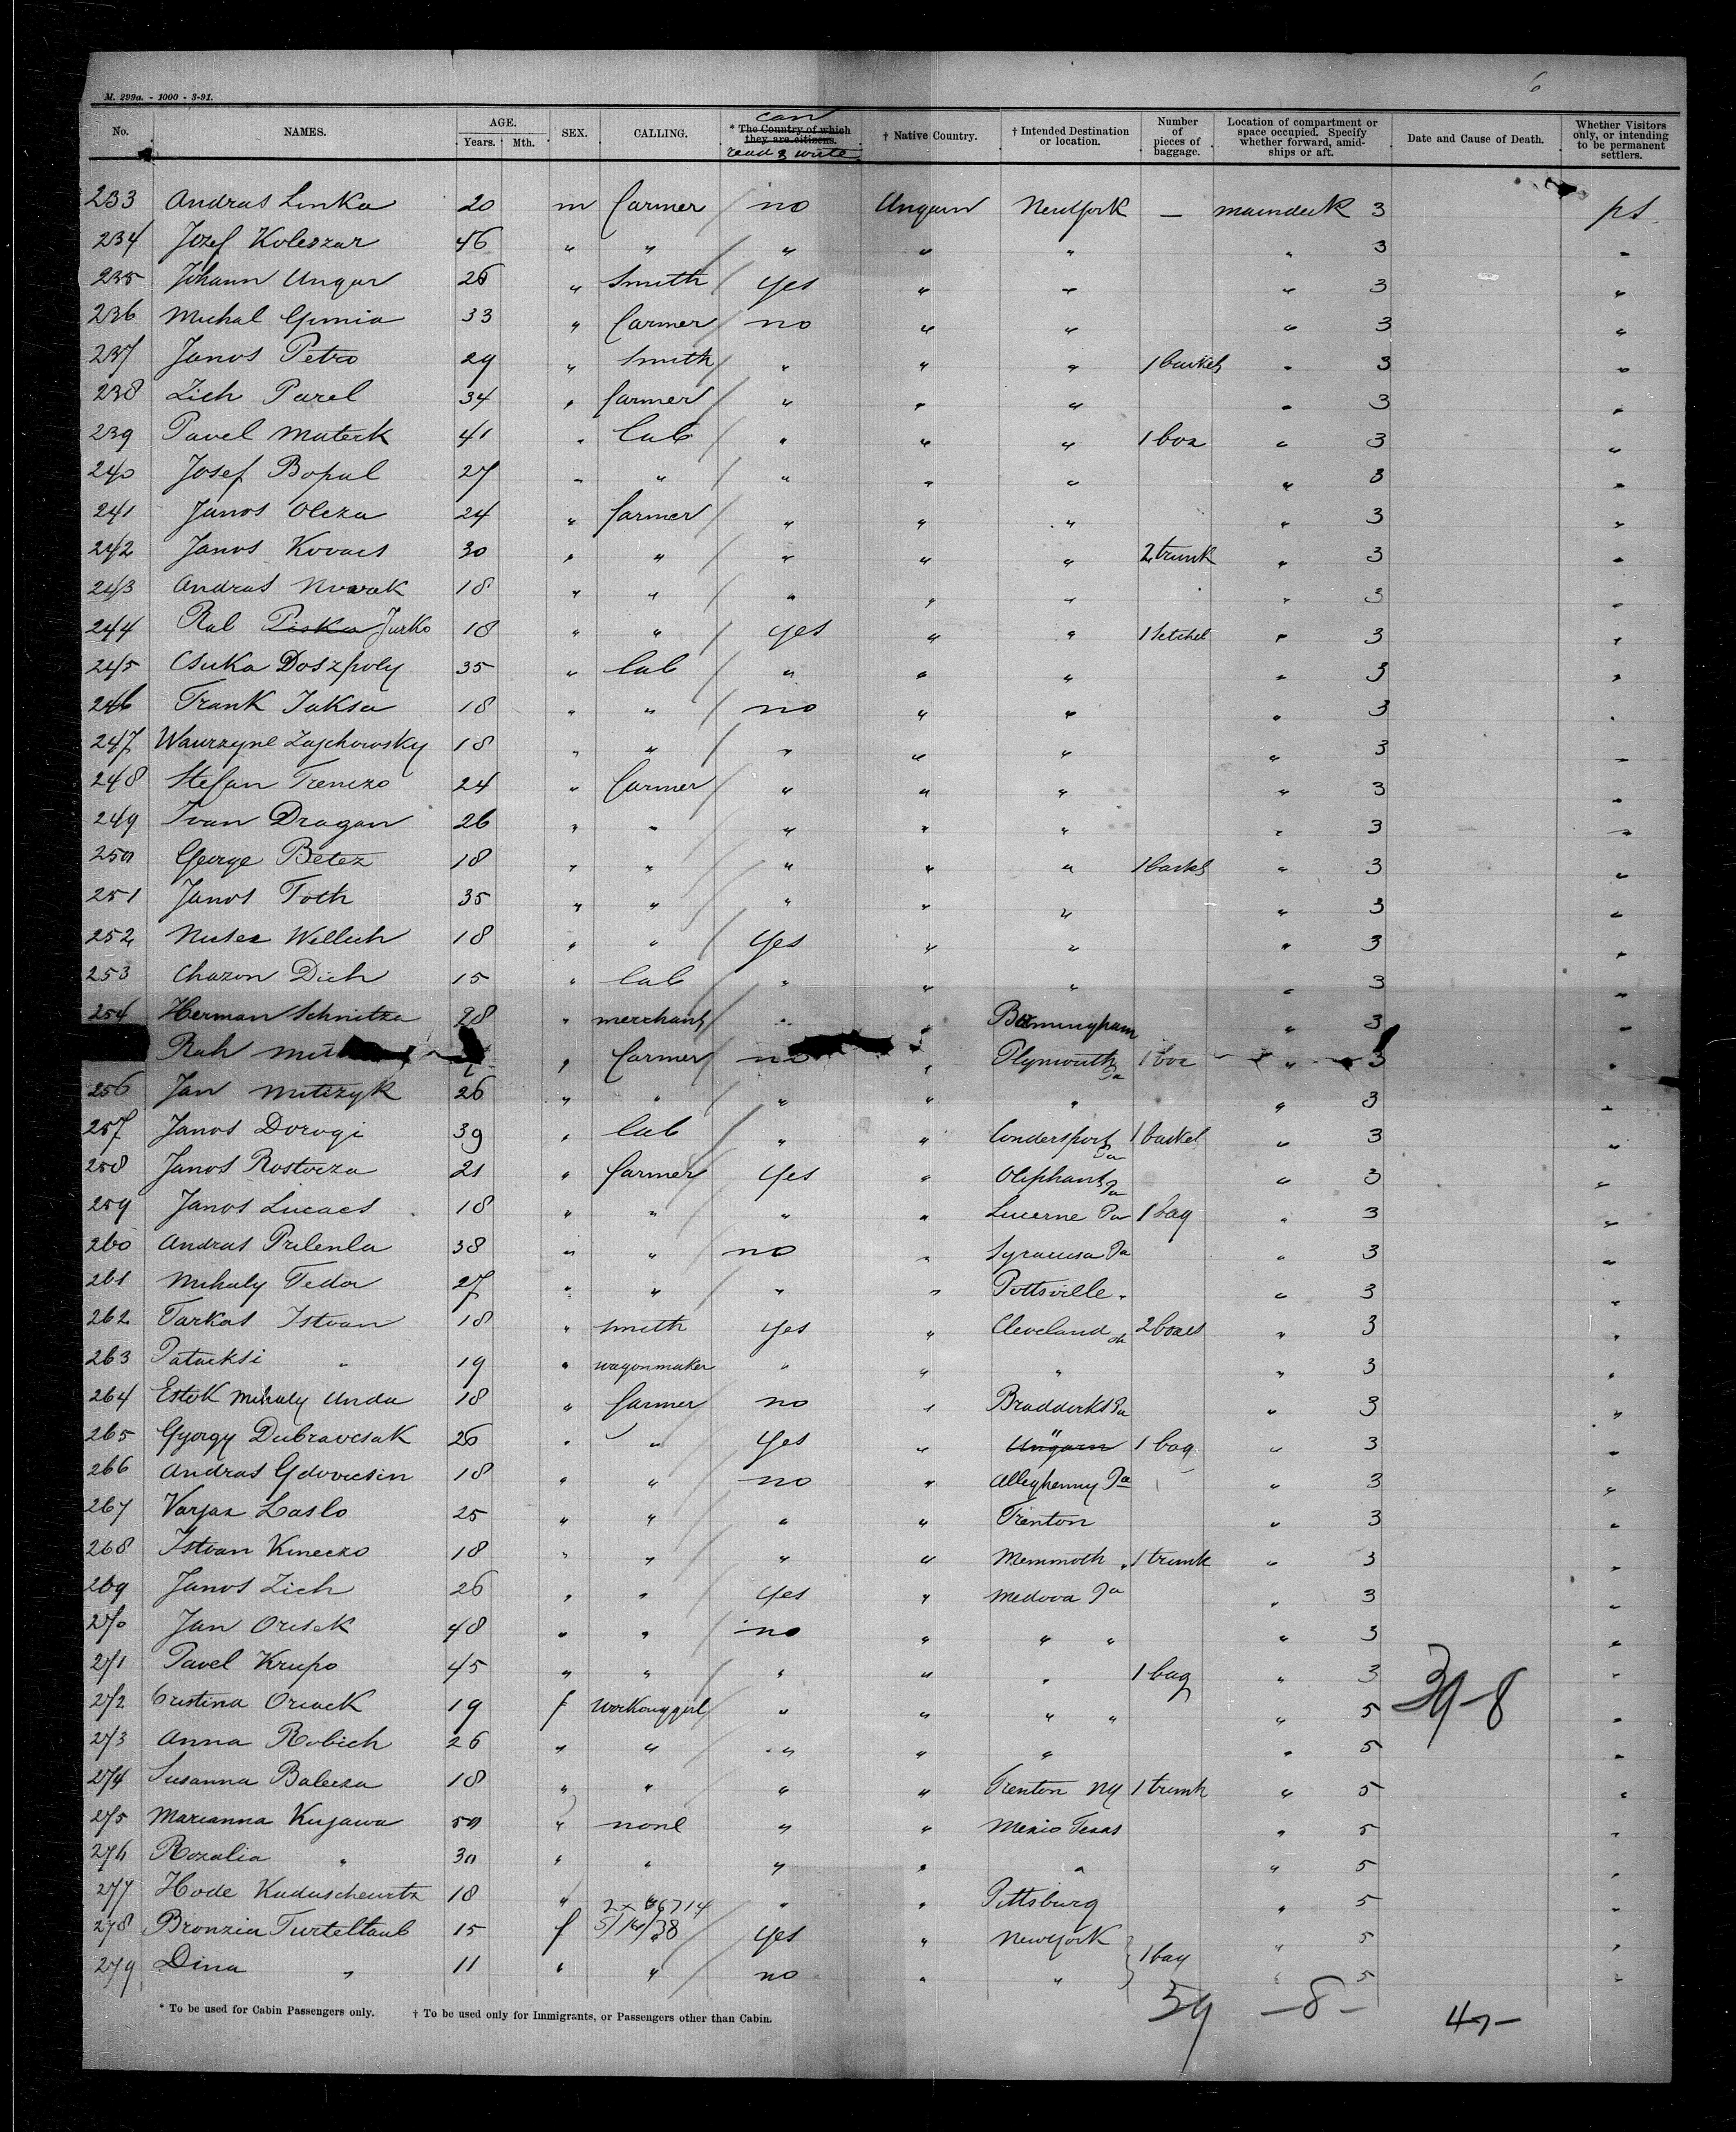 6
M. 299a. - 1000 - 3-91.
No. NAMES. AGE. Years. Mth. SEX. CALLING. * The Country of which they are citizens. can read & write † Native Country. † Intended Destination or location. Number of pieces of baggage. Location of compartment or space occupied. Specify whether forward, amidships or aft. Date and Cause of Death. Whether Visitors only, or intending to be permanent settlers.
233 Andras Linka 20 m farmer / no Ungarn NewYork — maindeck 3 ps
234 Jozef Koleszar 46 " " / " " " " 3 "
235 Johann Ungar 26 " Smith / yes " " " 3 "
236 Michal Gimia 33 " farmer / no " " " 3 "
237 Janos Petro 29 " Smith / " " " 1 basket " 3 "
238 Zich Parel 34 " farmer / " " " " 3 "
239 Pavel Materk 41 " lab / " " " 1 box " 3 "
240 Josef Bopal 27 " " / " " " " 3 "
241 Janos Olcza 24 " farmer / " " " " 3 "
242 Janos Kovacs 30 " " / " " " 2 trunk " 3 "
243 Andras Novak 18 " " / " " " " 3 "
244 Ral Piska Jurko 18 " " / yes " " 1 setchel " 3 "
245 Csuka Doszpoly 35 " lab / " " " " 3 "
246 Frank Jaksa 18 " " / no " " " 3 "
247 Wawrzyne Zajchowsky 18 " " / " " " " 3 "
248 Stefan Trenczo 24 " farmer / " " " " 3 "
249 Ivan Dragan 26 " " / " " " " 3 "
250 George Betez 18 " " / " " " 1 basket " 3 "
251 Janos Toth 35 " " / " " " " 3 "
252 Willich 18 " " / yes " " " 3 "
253 Chazon Dich 15 " lab / " " " " 3 "
254 Herman Schnitza 28 " merchant / " " Birmingham " 3 "
Rah " farmer / no " Plymouth Pa 1 box " 3 "
256 Jan Mutizyk 26 " " / " " " " 3 "
257 Janos Dorogi 39 " lab / " " Condersport Pa 1 basket " 3 "
258 Janos Rostocza 21 " farmer / yes " Oliphant Pa " 3 "
259 Janos Lucacs 18 " " / " " Lucerne Pa 1 bag " 3 "
260 Andras Prilenla 38 " " / no " Syracusa Pa " 3 "
261 Mihaly Fedor 27 " " / " " Pottsville " " 3 "
262 Farkas Istvan 18 " smith / yes " Cleveland oh 2 boxes " 3 "
263 Patacksi " 19 " wagonmaker " " " " 3 "
264 Estok Mihaly Unda 18 " farmer / no " Braddocks Pa " 3 "
265 Gyorgy Dubravcsak 26 " " / yes " Ungarn " 1 bag " 3 "
266 Andras Gdovicsin 18 " " / no " Alleghenny Pa " 3 "
267 Varjas Laslo 25 " " / " " Trenton " 3 "
268 Istvan Kineczo 18 " " / " " Memmoth " 1 trunk " 3 "
269 Janos Zich 26 " " / yes " Medova Pa " 3 "
270 Jan Orisek 48 " " / no " " " " 3 "
271 Pavel Krupo 45 " " / " " " 1 bag " 3 "
272 Cristina Oriack 19 f workinggirl / " " " " " 5 39-8 "
273 Anna Robich 26 " " / " " " " 5 "
274 Susanna Balecza 18 " " / " " Trenton NY 1 trunk " 5 "
275 Marianna Kujawa 50 " none " " Mexio Texas " 5 "
276 Rozalia " 30 " " " " " " 5 "
277 Hode Kaduschewitz 18 " 2x 66714 " " Pittsburg " 5 "
278 Bronzia Turteltaub 15 f 5/14/38 " yes " NewYork 1 bag " 5 "
279 Dina " 11 " " / no " " " 5 "
* To be used for Cabin Passengers only. † To be used only for Immigrants, or Passengers other than Cabin.
39 —8— 47—